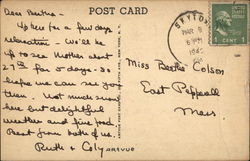 POST CARD
Dear Bertha -
Up here for a few days
relaxation - We'll be
up to see Mother about
27th for 5 days - so
hope we can see you
then. Not much snow
here but delightful
weather and fine food.
Best from both of us.
Ruth & Coly
ARTVUE
MAR 9
6 PM
1 CENT 1
Miss Bertha Colson
East Pepperell
Mass